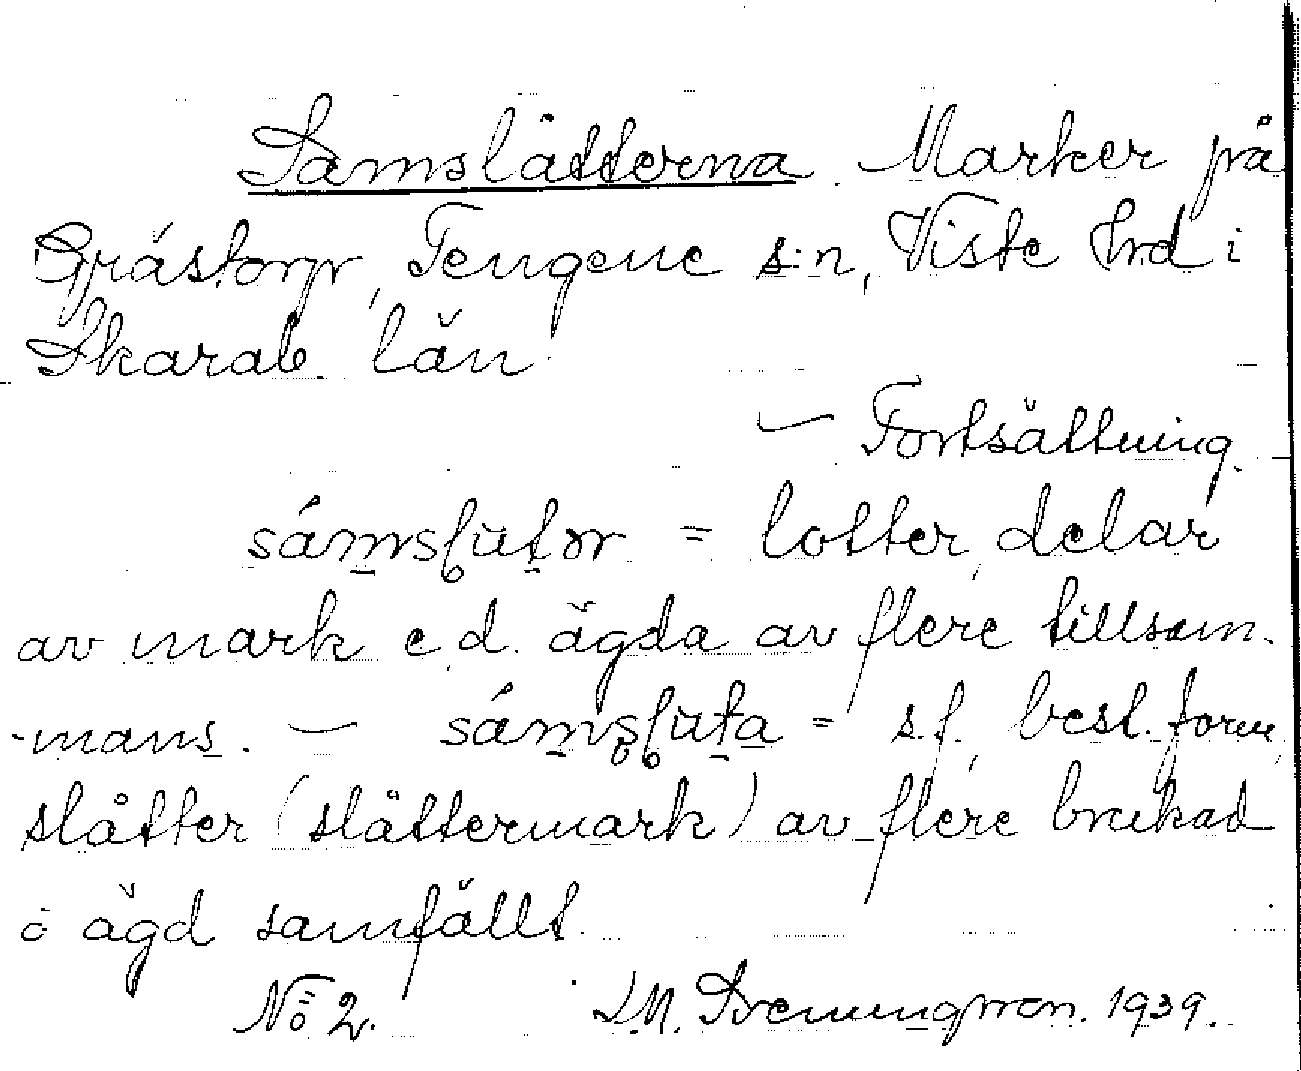 Samslåtterna. Marker på
Gråstorp, Tengene s:n, Viste hrd i
Skarab. län.
— Fortsättning.
= lotter, delar
av mark e.d. ägda av flere tillsam-
-mans. — = s.f. best. form,
slåtter (slåttermark) av flere brukad
o ägd samfällt.
No 2. 1939.